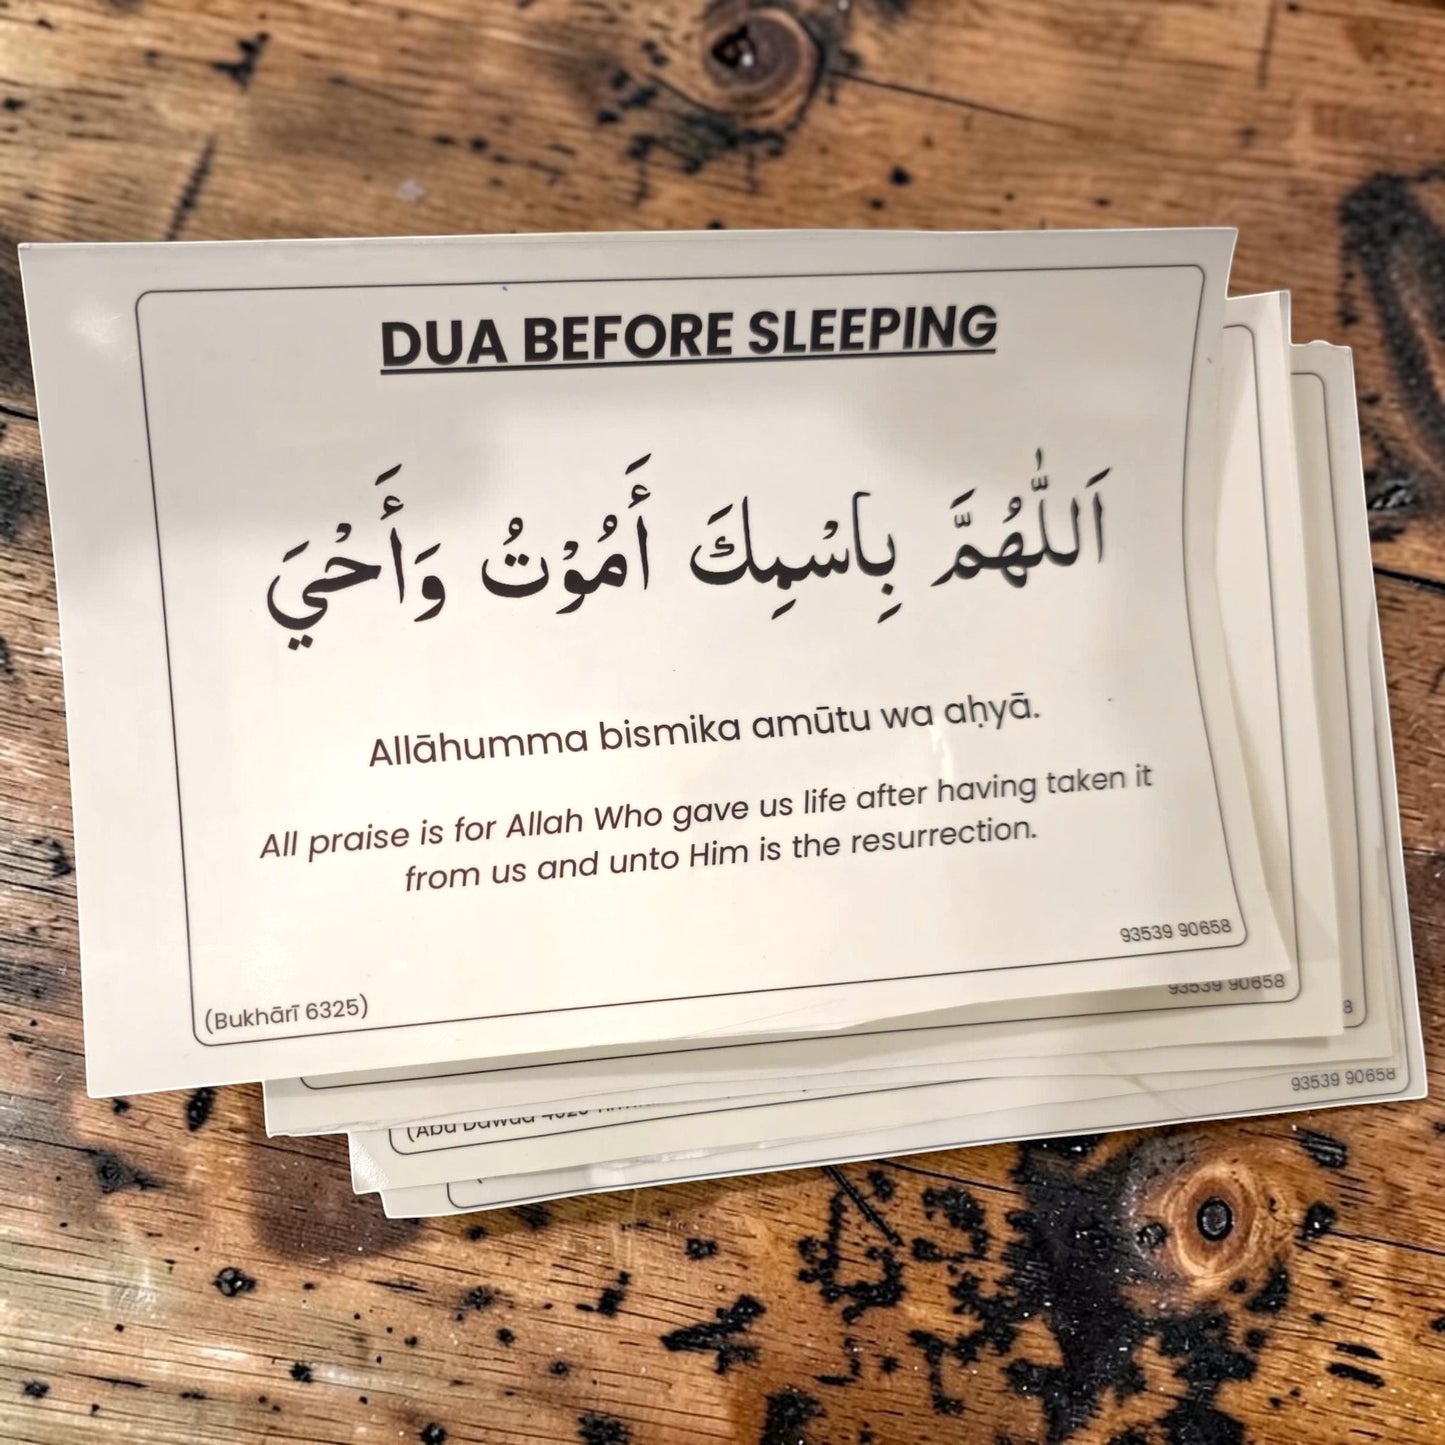 DUA BEFORE SLEEPING
اَللّٰهُمَّ بِاسْمِكَ أَمُوْتُ وَأَحْيَ
Allāhumma bismika amūtu wa aḥyā.
All praise is for Allah Who gave us life after having taken it
from us and unto Him is the resurrection.
93539 90658
(Bukhārī 6325)
93539 90658
8
(Abu Dawud
93539 90658